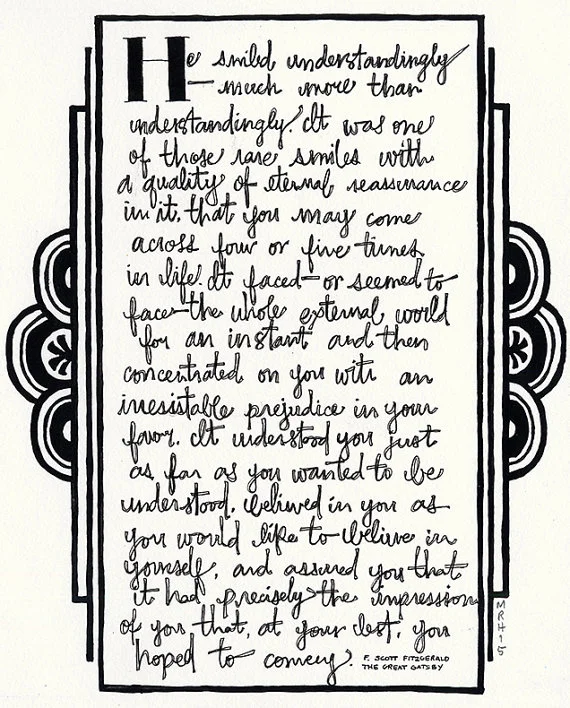 He smiled understandingly
— much more than
understandingly. It was one
of those rare smiles with
a quality of eternal reassurance
in it, that you may come
across four or five times
in life. It faced—or seemed to
face—the whole external world
for an instant and then
concentrated on you with an
irresistable prejudice in your
favor. It understood you just
as far as you wanted to be
understood, believed in you as
you would like to believe in
yourself, and assured you that
it had precisely the impression
of you that, at your best, you
hoped to convey.
F. SCOTT FITZGERALD
THE GREAT GATSBY
MRH15